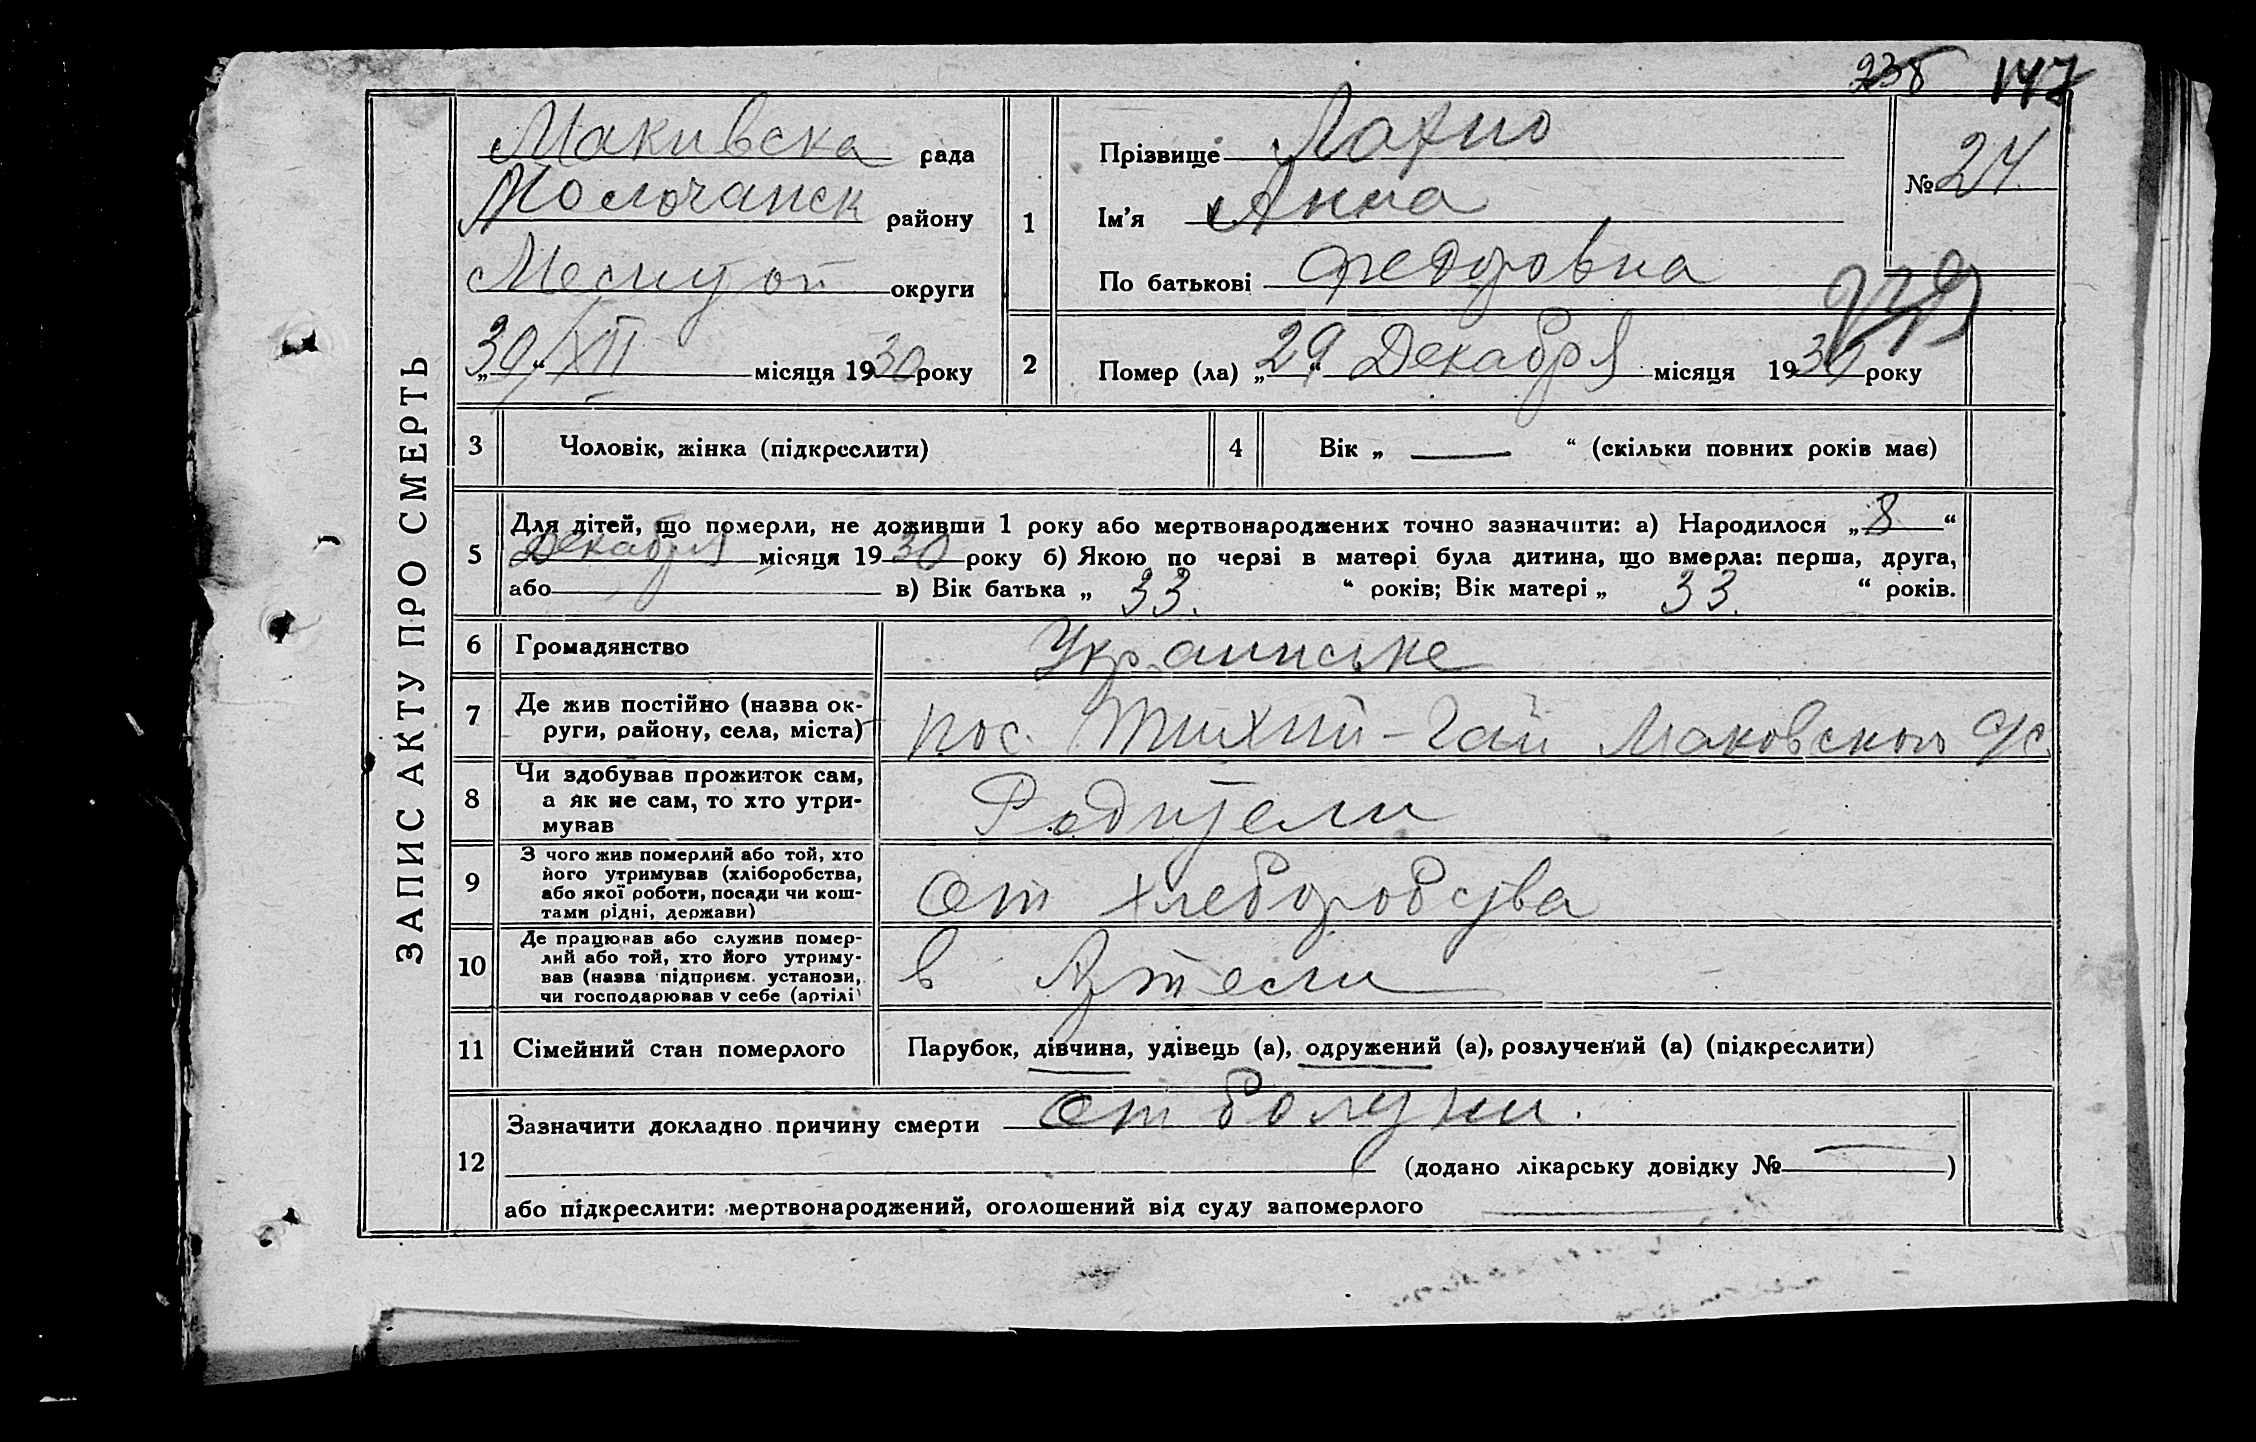 238 147
ЗАПИС АКТУ ПРО СМЕРТЬ
Макивска рада
Молочанск району
Мелитоп округи
„30“ XII місяця 1930 року
1
Прізвище Лахно
Ім’я Анна
По батькові Федоровна
№ 24
2
Помер (ла) „29“ Декабря місяця 1930 року
3 Чоловік, жінка (підкреслити)
4 Вік „ — “ (скільки повних років має)
5
Для дітей, що померли, не доживши 1 року або мертвонароджених точно зазначити: а) Народилося „8“
Декабря місяця 1930 року б) Якою по черзі в матері була дитина, що вмерла: перша, друга,
або в) Вік батька „ 33. “ років; Вік матері „ 33. “ років.
6 Громадянство Украинське
7 Де жив постійно (назва ок-
руги, району, села, міста)
пос. Тихий-Гай Маковского с/с
8 Чи здобував прожиток сам,
а як не сам, то хто утри-
мував
Родители
9 З чого жив померлий або той, хто
його утримував (хліборобства,
або якої роботи, посади чи кош-
тами рідні, держави)
от хлеборобства
10 Де працював або служив помер-
лий або той, хто його утриму-
вав (назва підприєм. установи,
чи господарював у себе (артілі)
в Артели
11 Сімейний стан померлого
Парубок, дівчина, удівець (а), одружений (а), розлучений (а) (підкреслити)
12
Зазначити докладно причину смерти от
(додано лікарську довідку № — )
або підкреслити: мертвонароджений, оголошений від суду запомерлого